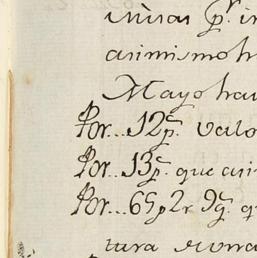 misas pr. in
asimismo h
Mayo hau
Por... 12p. valo
Por... 13p. que asi
Por... 65p 2r 9g. q
tura